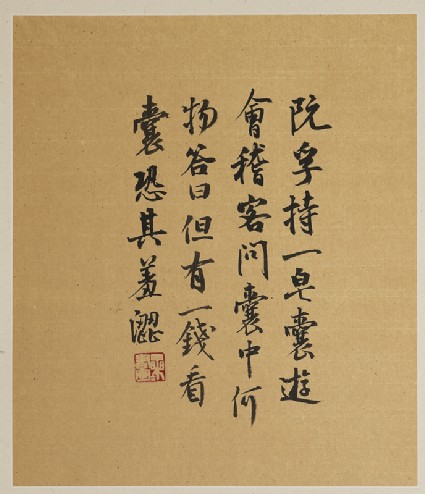 阮孚持一皁囊遊
會稽客問囊中何
物答曰但有一錢看
囊恐其羞澀